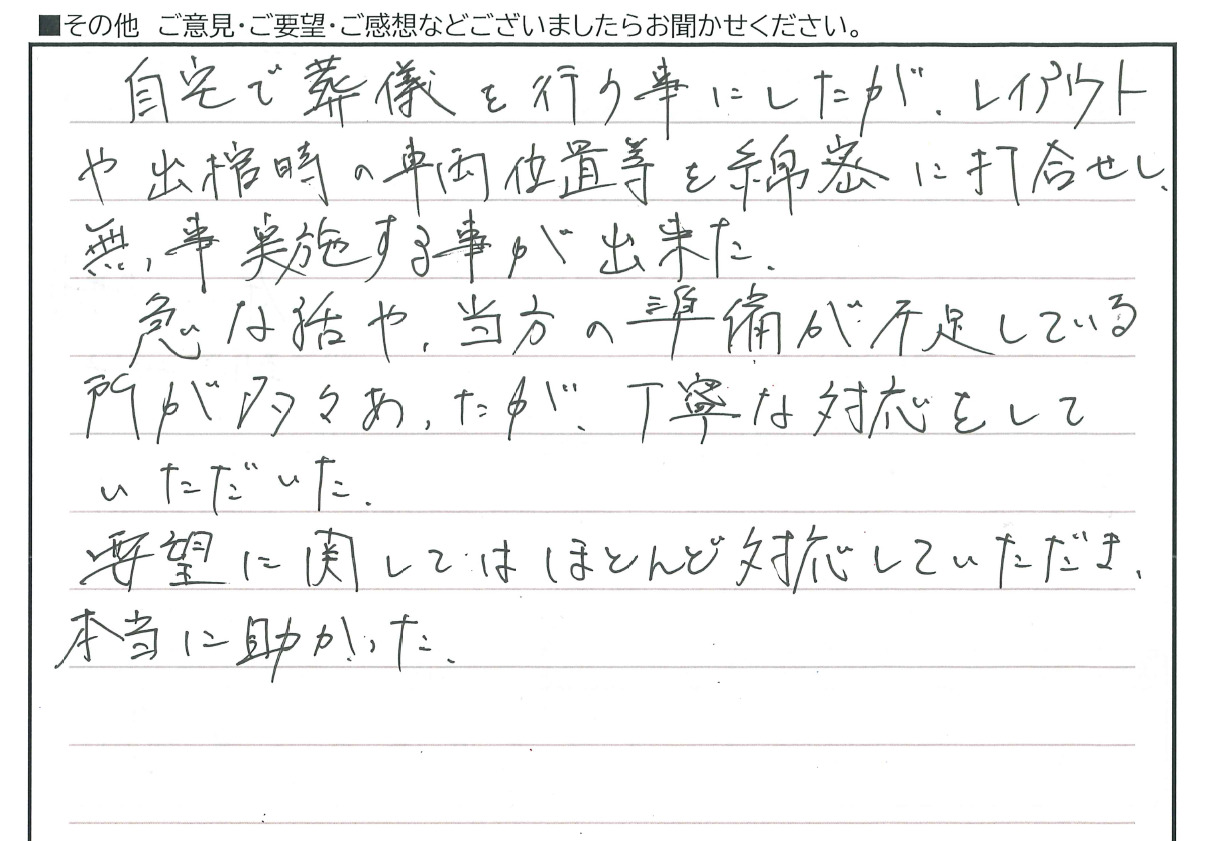 ■その他 ご意見・ご要望・ご感想などございましたらお聞かせください。
自宅で葬儀を行う事にしたが、レイアウト
や出棺時の車両位置等を綿密に打合せし、
無事実施する事が出来た。
急な話や、当方の準備が不足している
所が多々あったが、丁寧な対応をして
いただいた。
要望に関してはほとんど対応していただき、
本当に助かった。